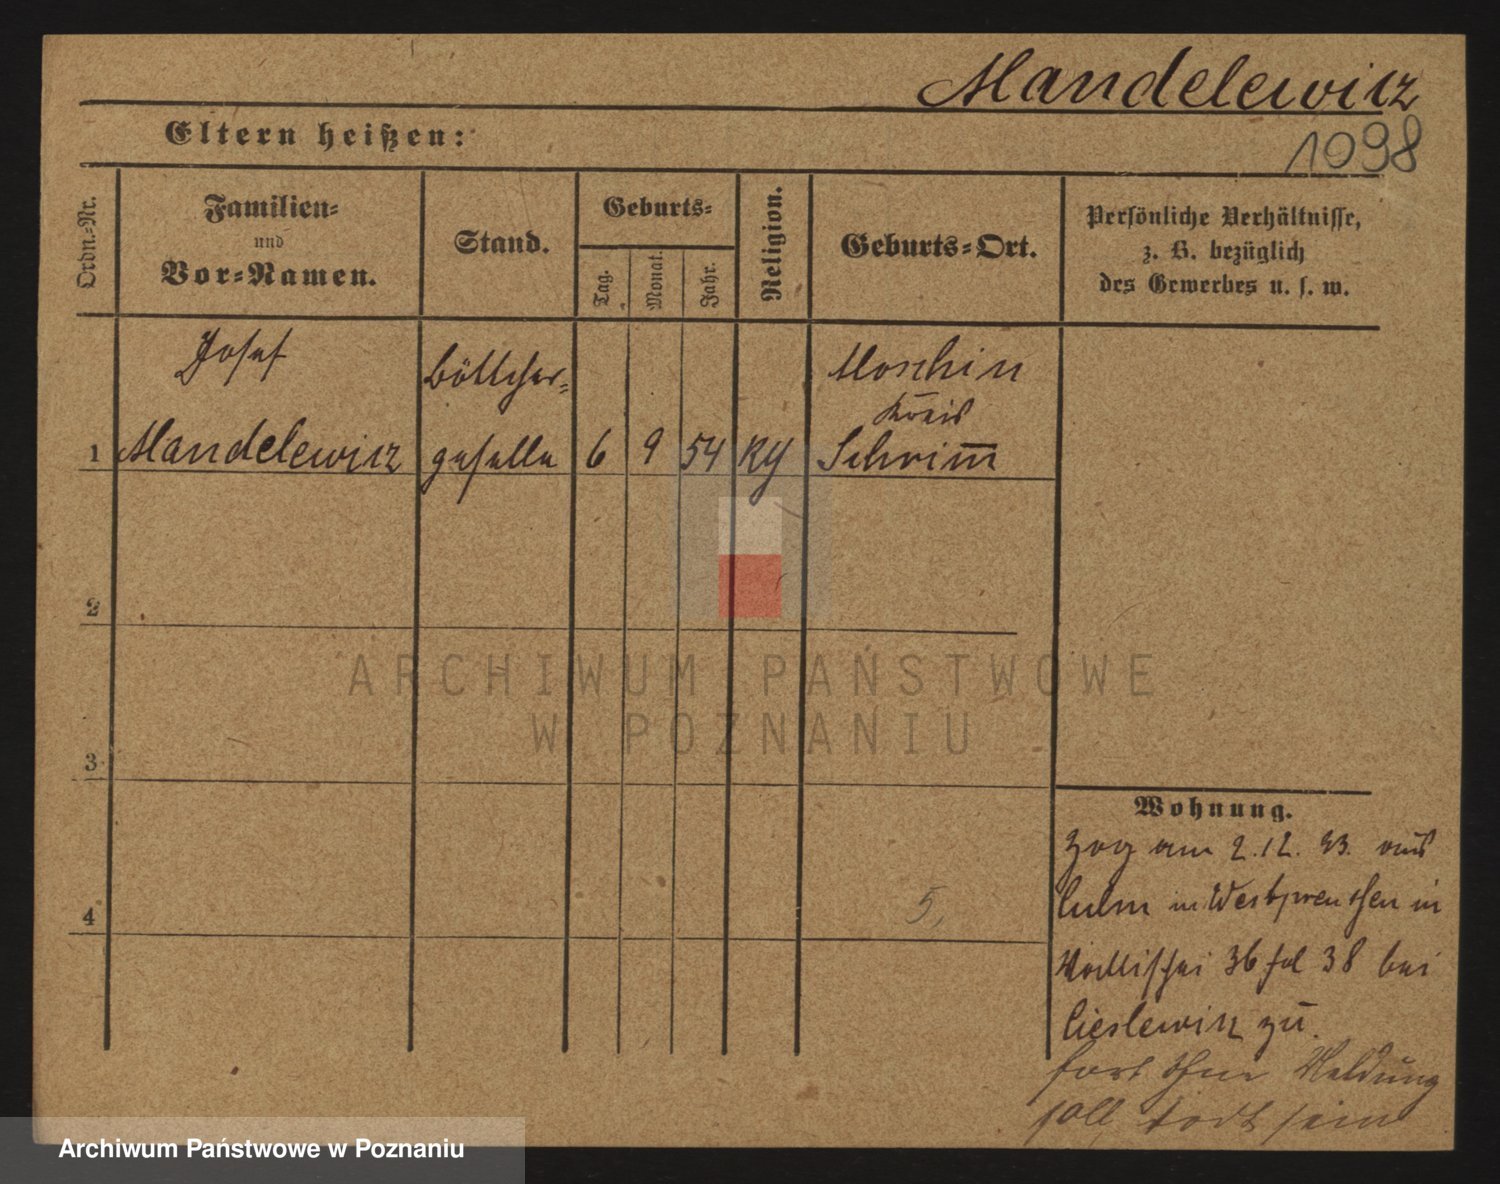 Mandelewicz
1098
Eltern heißen:
Ordn.-Nr.
Familien-
und
Vor-Namen.
Stand.
Geburts-
Tag.
Monat.
Jahr.
Religion.
Geburts-Ort.
Persönliche Verhältnisse,
z. B. bezüglich
des Gewerbes u. s. w.
Josef
Mandelewicz
Böttcher-
geselle
6
9
54
Moschin
Kreis
Schrim̅
1
2
3
4
5,
ARCHIWUM PAŃSTWOWE
W POZNANIU
Wohnung.
Zog am 2.12. 93. aus
Culm in Westpreuschen in
Wallischei 36 fol 38 bei
Cieslewicz zu.
fort ohne Meldung
soll todt sein
Archiwum Państwowe w Poznaniu